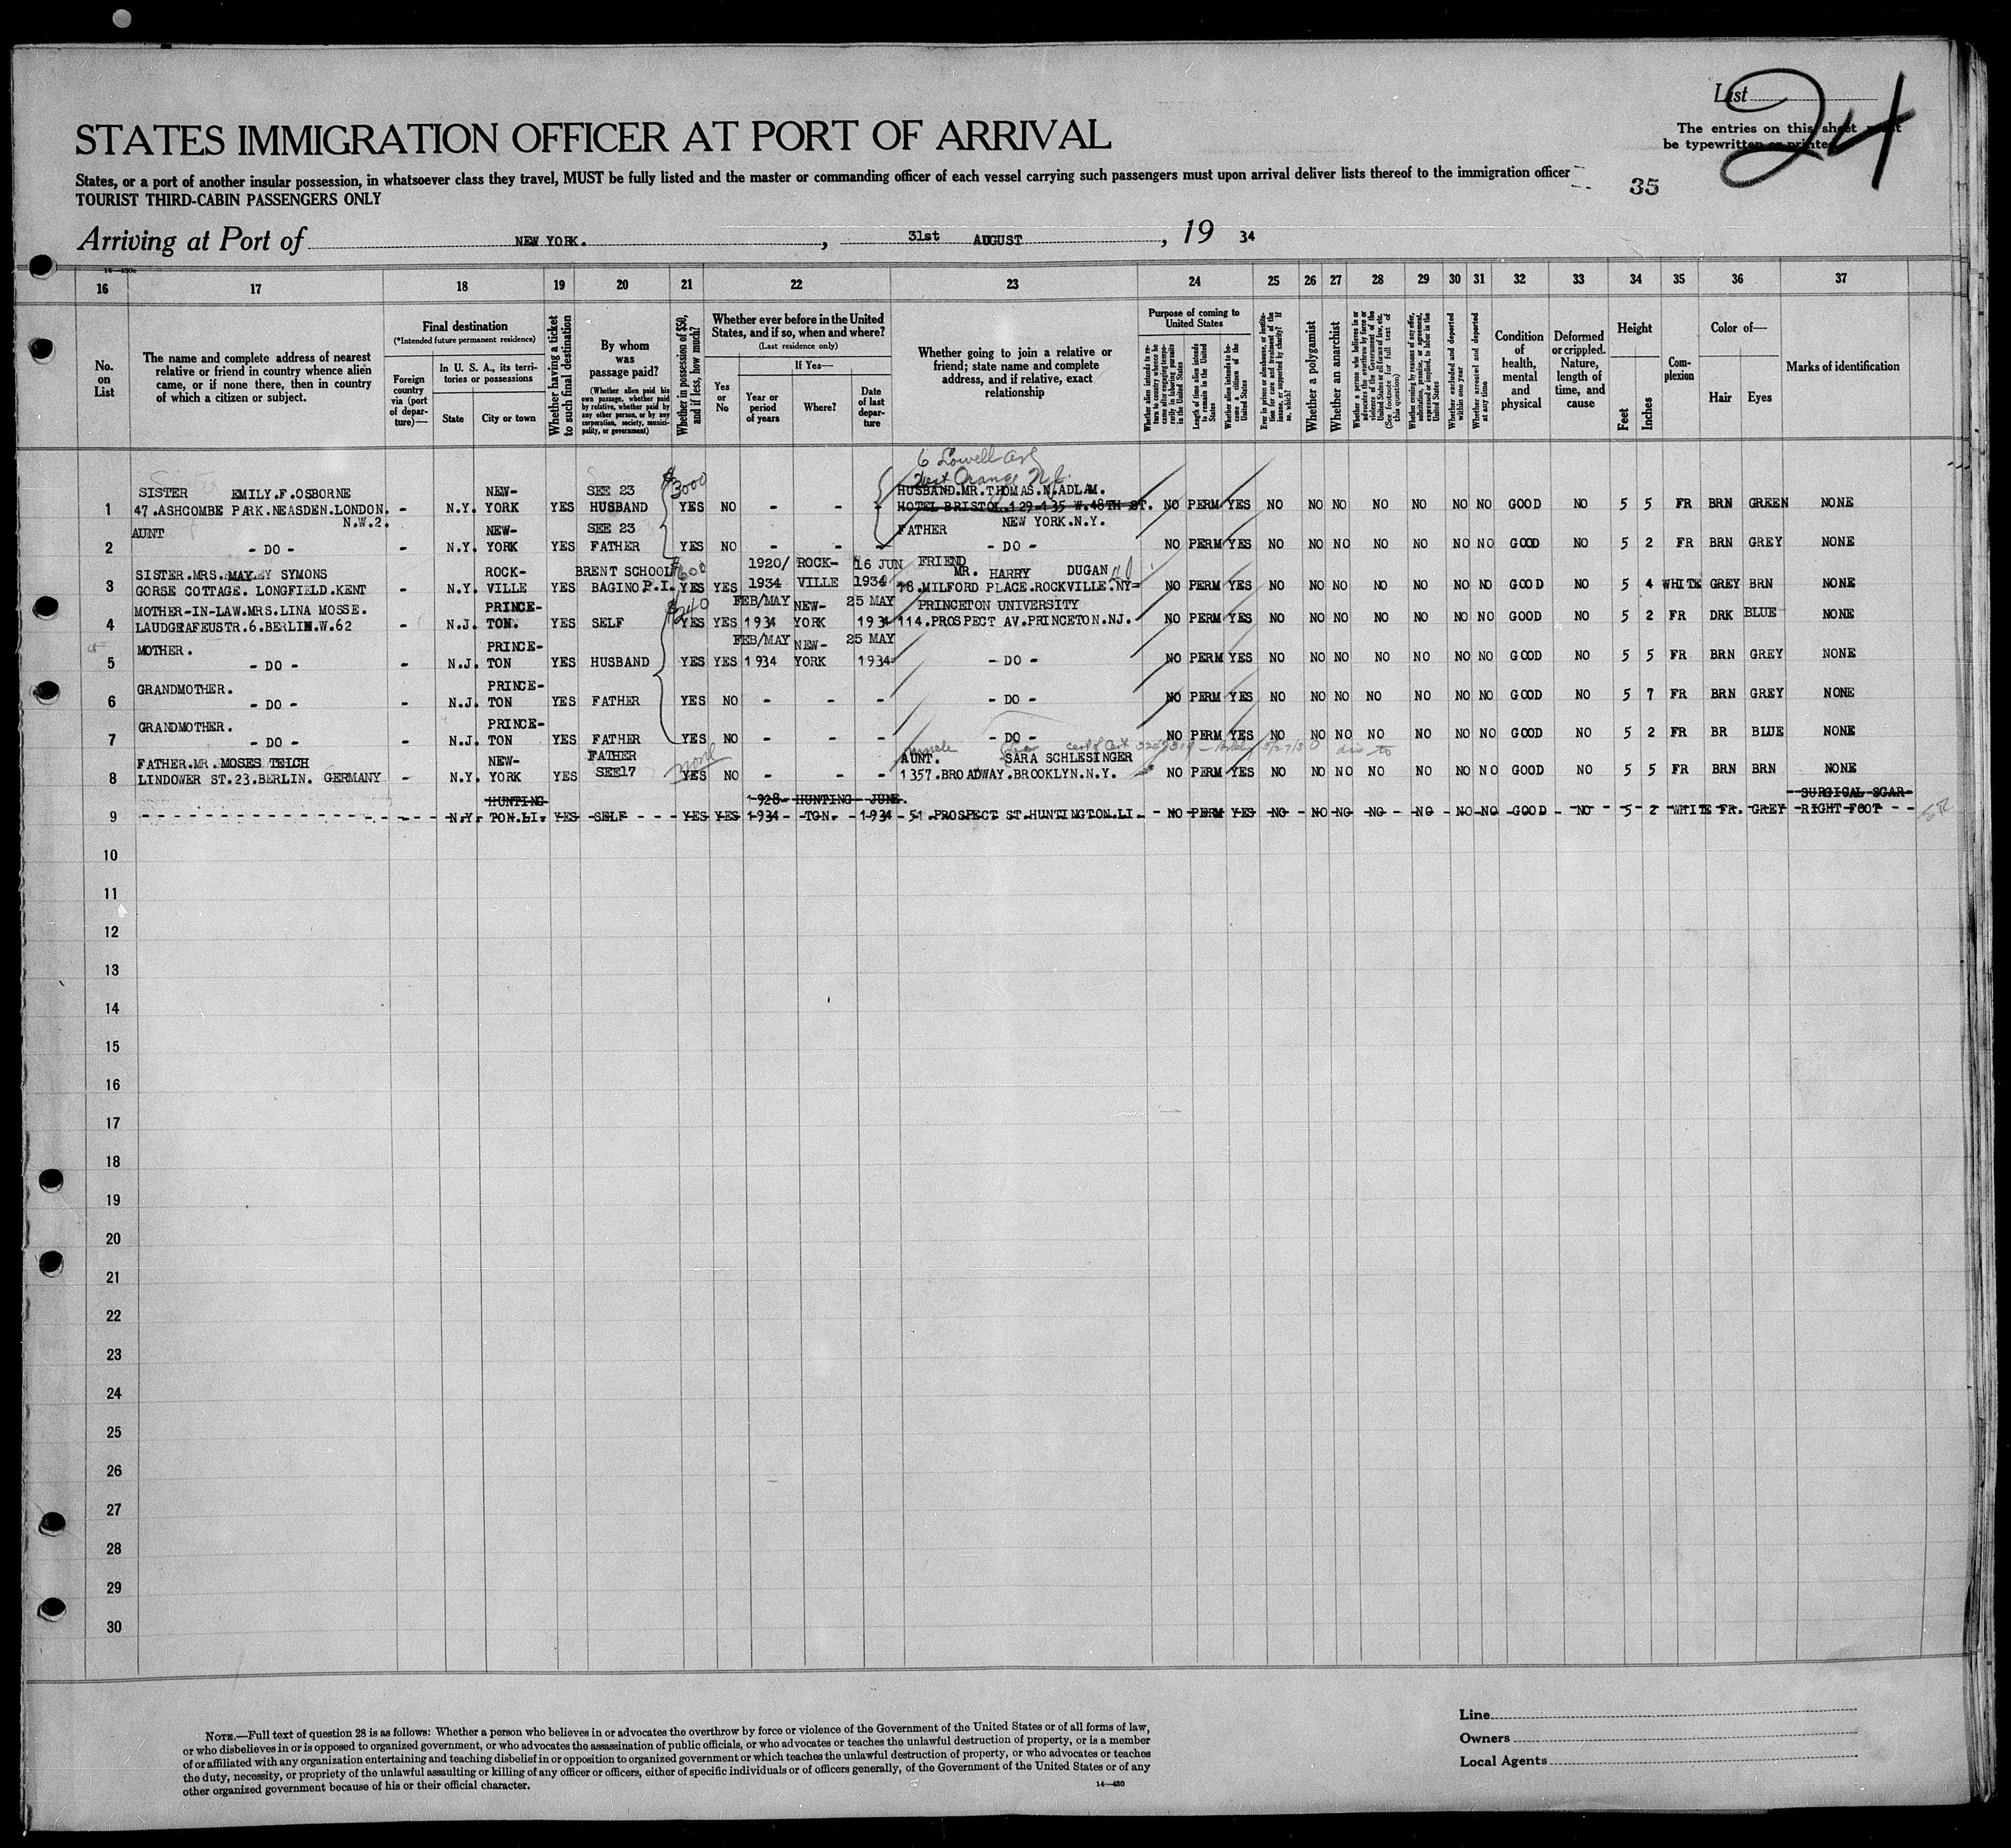 List
24
STATES IMMIGRATION OFFICER AT PORT OF ARRIVAL
The entries on this sheet must
be typewritten or printed
States, or a port of another insular possession, in whatsoever class they travel, MUST be fully listed and the master or commanding officer of each vessel carrying such passengers must upon arrival deliver lists thereof to the immigration officer
35
TOURIST THIRD-CABIN PASSENGERS ONLY
Arriving at Port of NEW YORK. , 31st AUGUST , 19 34
14—430c
16 17 18 19 20 21 22 23 24 25 26 27 28 29 30 31 32 33 34 35 36 37
No. on List
The name and complete address of nearest
relative or friend in country whence alien
came, or if none there, then in country
of which a citizen or subject.
Final destination
(*Intended future permanent residence)
Foreign country via (port of departure)—
In U. S. A., its territories or possessions
State
City or town
Whether having a ticket to such final destination
By whom was passage paid?
(Whether alien paid his own passage, whether paid by relative, whether paid by any other person, or by any corporation, society, municipality, or government)
Whether in possession of $50, and if less, how much?
Whether ever before in the United States, and if so, when and where?
(Last residence only)
Yes or No
If Yes—
Year or period of years
Where?
Date of last departure
Whether going to join a relative or
friend; state name and complete
address, and if relative, exact
relationship
Purpose of coming to United States
Whether alien intends to return to country whence he came after engaging temporarily in laboring pursuits in the United States
Length of time alien intends to remain in the United States
Whether alien intends to become a citizen of the United States
Ever in prison or almshouse, or institution for care and treatment of the insane, or supported by charity? If so, which?
Whether a polygamist
Whether an anarchist
Whether a person who believes in or advocates the overthrow by force or violence of the Government of the United States or all forms of law, etc. (See footnote for full text of this question)
Whether coming by reasons of any offer, solicitation, promise, or agreement, expressed or implied, to labor in the United States
Whether excluded and deported within one year
Whether arrested and deported at any time
Condition of health, mental and physical
Deformed or crippled. Nature, length of time, and cause
Height
Feet
Inches
Complexion
Color of—
Hair
Eyes
Marks of identification
6 Lowell Ave
West Orange N.J.
SISTER EMILY.F.OSBORNE NEW- SEE 23 $3000 HUSBAND.MR.THOMAS.N.ADLAM.
1 47.ASHCOMBE PARK.NEASDEN.LONDON. - N.Y. YORK YES HUSBAND YES NO - - - HOTEL BRISTOL.129-135 W.48TH ST. NO PERM YES NO NO NO NO NO NO NO GOOD NO 5 5 FR BRN GREEN NONE
N.W.2. NEW YORK.N.Y.
AUNT NEW- SEE 23 FATHER
2 - DO - - N.Y. YORK YES FATHER YES NO - - - - DO - NO PERM YES NO NO NO NO NO NO NO GOOD NO 5 2 FR BRN GREY NONE
SISTER.MRS.MAY SYMONS ROCK- BRENT SCHOOL $600 1920/ ROCK- 16 JUN FRIEND MR. HARRY DUGAN
3 GORSE COTTAGE. LONGFIELD.KENT - N.Y. VILLE YES BAGINO.P.I. YES YES 1934 VILLE 1934 78.MILFORD PLACE.ROCKVILLE.NY- NO PERM YES NO NO NO NO NO NO NO GOOD NO 5 4 WHITE GREY BRN NONE
MOTHER-IN-LAW.MRS.LINA MOSSE. PRINCE- $240 FEB/MAY NEW- 25 MAY PRINCETON UNIVERSITY
4 LAUDGRAFEUSTR.6.BERLIN.W.62 - N.J. TON. YES SELF YES YES 1934 YORK 1934 114.PROSPECT AV.PRINCETON.NJ. NO PERM YES NO NO NO NO NO NO NO GOOD NO 5 2 FR DRK BLUE NONE
MOTHER. PRINCE- FEB/MAY NEW- 25 MAY
5 - DO - - N.J. TON YES HUSBAND YES YES 1934 YORK 1934 - DO - NO PERM YES NO NO NO NO NO NO NO GOOD NO 5 5 FR BRN GREY NONE
GRANDMOTHER. PRINCE-
6 - DO - - N.J. TON YES FATHER YES NO - - - - DO - NO PERM YES NO NO NO NO NO NO NO GOOD NO 5 7 FR BRN GREY NONE
GRANDMOTHER. PRINCE-
7 - DO - - N.J. TON YES FATHER YES NO - - - - DO - NO PERM YES NO NO NO NO NO NO NO GOOD NO 5 2 FR BR BLUE NONE
uncle
FATHER.MR.MOSES TEICH NEW- FATHER none AUNT. SARA SCHLESINGER
8 LINDOWER ST.23.BERLIN. GERMANY - N.Y. YORK YES SEE17 YES NO - - - 1357.BROADWAY.BROOKLYN.N.Y. NO PERM YES NO NO NO NO NO NO NO GOOD NO 5 5 FR BRN BRN NONE
HUNTING- 1928- HUNTING- JUNE. SURGICAL SCAR
9 N.Y. TON.LI. YES SELF YES YES 1934 TON. 1934 51.PROSPECT ST.HUNTINGTON.LI. NO PERM YES NO NO NO NO NO NO NO GOOD NO 5 2 WHITE FR. GREY RIGHT FOOT
10
11
12
13
14
15
16
17
18
19
20
21
22
23
24
25
26
27
28
29
30
NOTE.—Full text of question 28 is as follows: Whether a person who believes in or advocates the overthrow by force or violence of the Government of the United States or of all forms of law,
or who disbelieves in or is opposed to organized government, or who advocates the assassination of public officials, or who advocates or teaches the unlawful destruction of property, or is a member
of or affiliated with any organization entertaining and teaching disbelief in or opposition to organized government or which teaches the unlawful destruction of property, or who advocates or teaches
the duty, necessity, or propriety of the unlawful assaulting or killing of any officer or officers, either of specific individuals or of officers generally, of the Government of the United States or of any
other organized government because of his or their official character.
14—430
Line
Owners
Local Agents